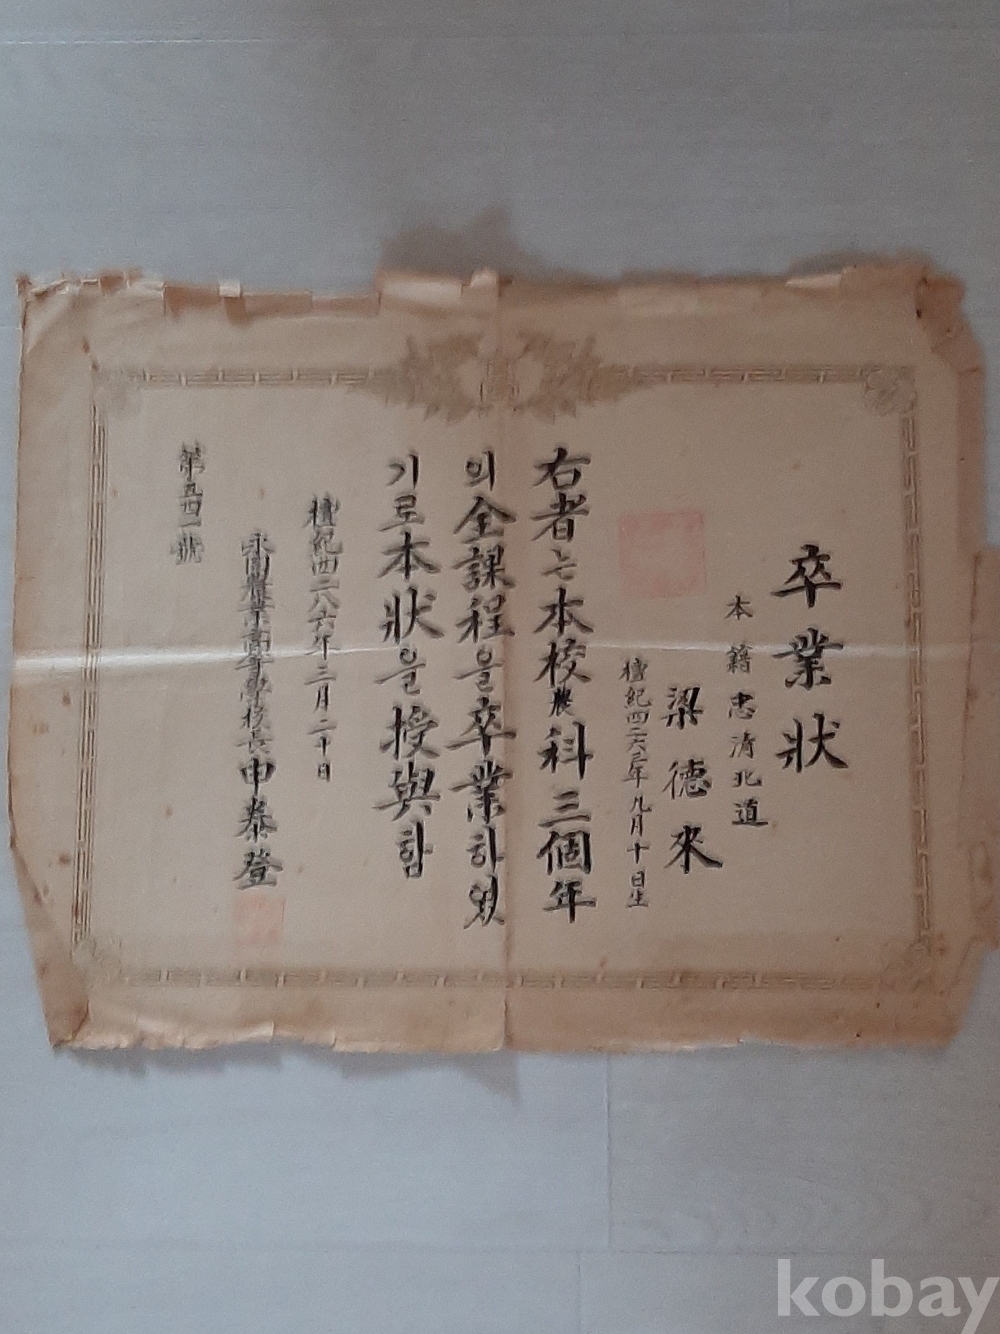 卒業狀
本籍 忠清北道
梁德來
檀紀四二六三年九月十日生
右者는本校農科三個年
의全課程을卒業하였
기로本狀을授與함
檀紀四二八六年三月二十日
永同農業高等學校長 申泰登
第五四一號
kobay